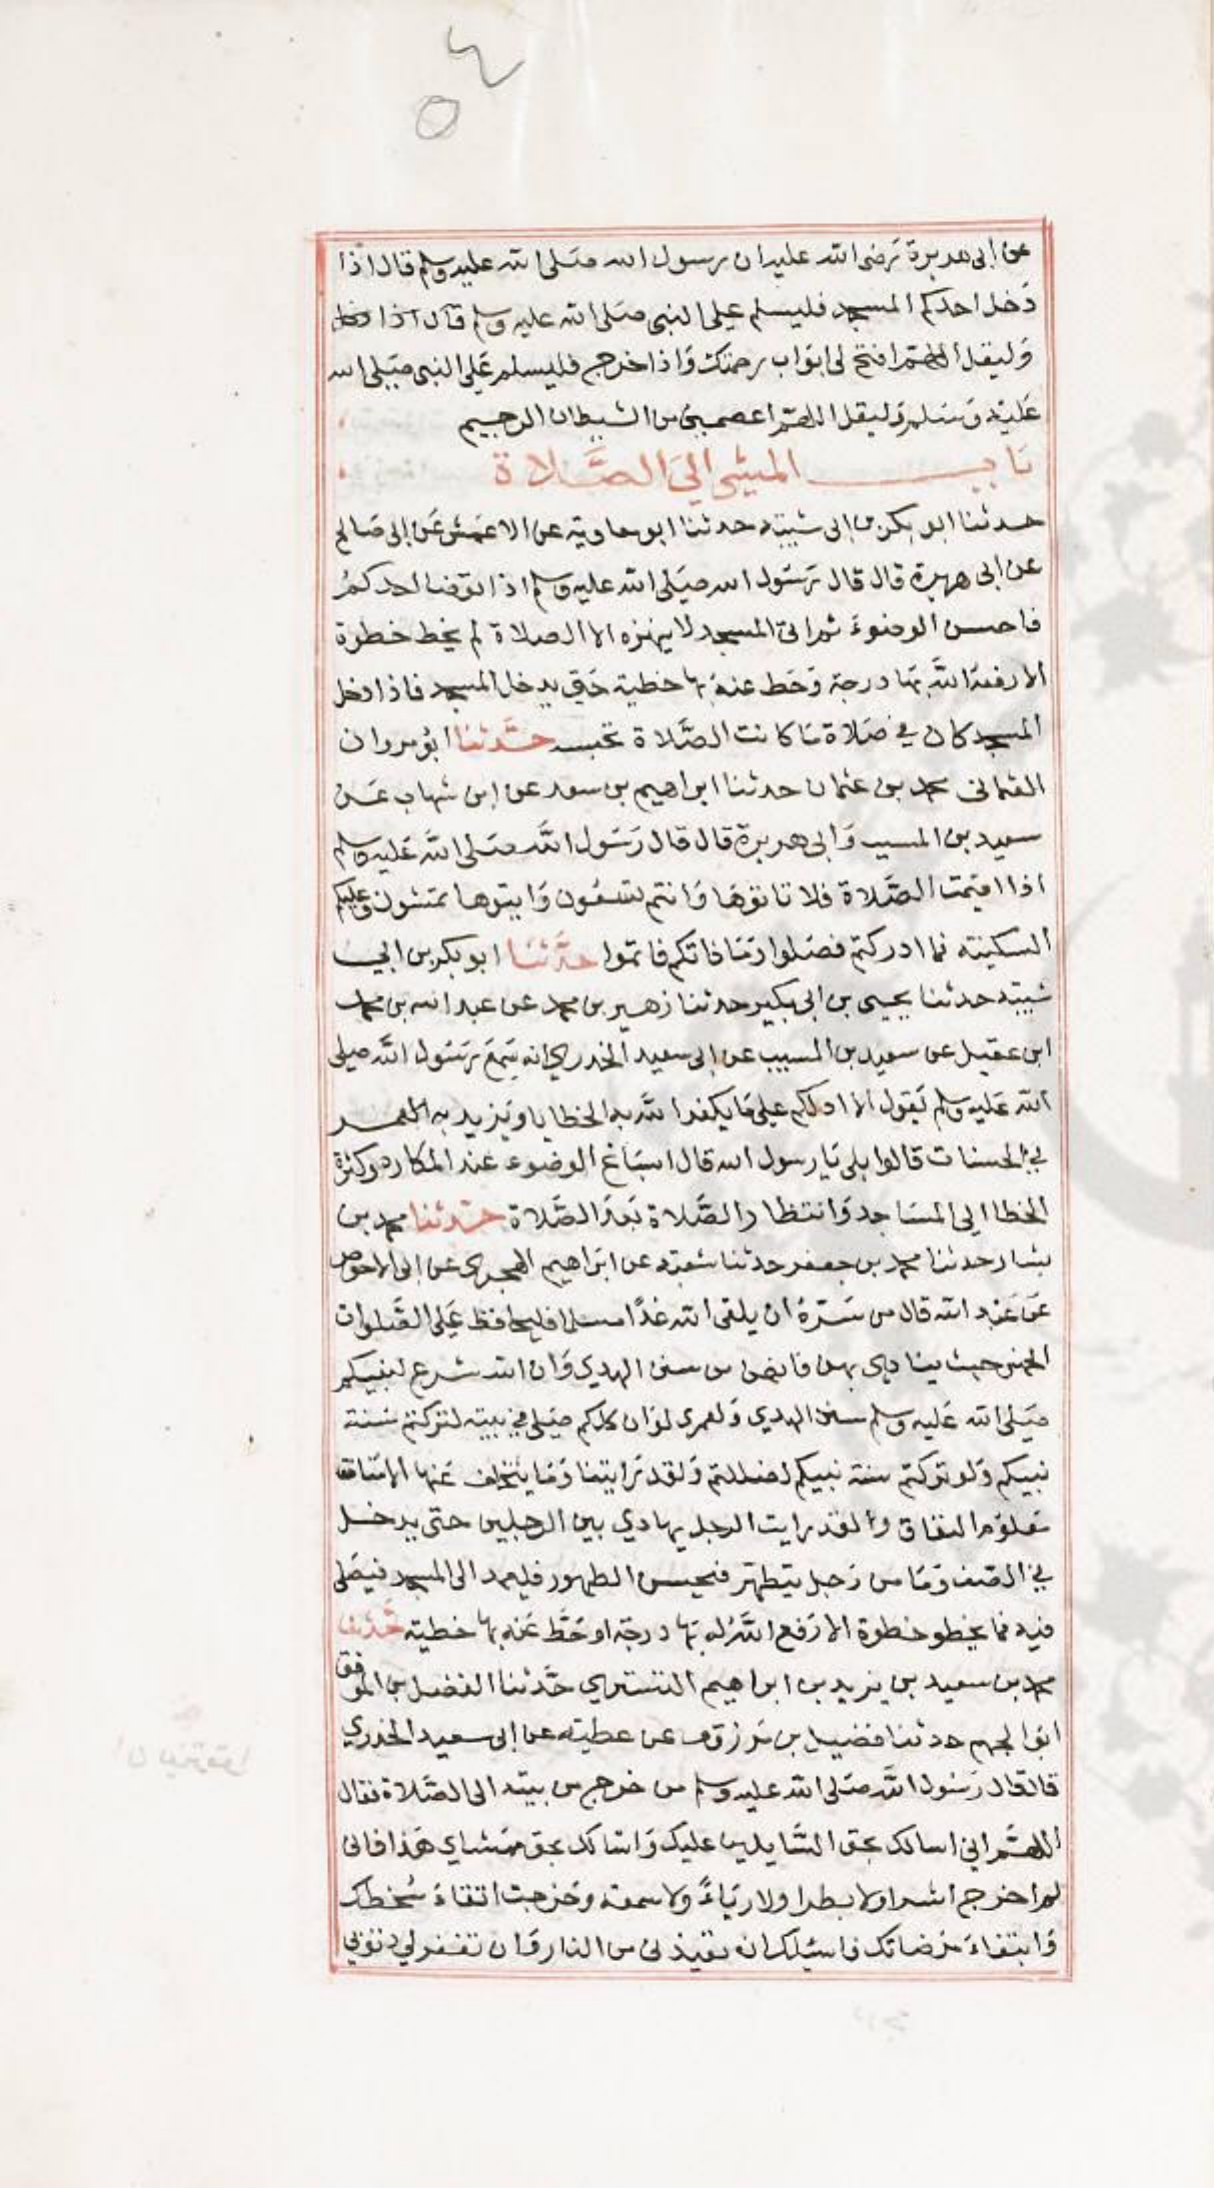 ٥٤
عن ابى هريرة رضى الله عليه ان رسول الله صلى الله عليه وسلم قال اذا
دخل احدكم المسجد فليسلم على النبى صلى الله عليه وسلم قال اذا دخل
وليقل اللهم افتح لى ابواب رحمتك واذا خرج فليسلم على النبى صلى الله
عليه وسلم وليقل اللهم اعصمنى من الشيطان الرجيم
باب المشى الى الصلاة
حدثنا ابو بكر بن ابى شيبة حدثنا ابو معاوية عن الاعمش عن ابى صالح
عن ابى هريرة قال قال رسول الله صلى الله عليه وسلم اذا توضا احدكم
فاحسن الوضوء ثم اتى المسجد لا ينهزه الا الصلاة لم يخط خطوة
الا رفعه الله بها درجة وحط عنه بها خطية حتى يدخل المسجد فاذا دخل
المسجد كان فى صلاة ما كانت الصلاة تحبسه حدثنا ابو مروان
العثمانى محمد بن عثمان حدثنا ابراهيم بن سعد عن ابن شهاب عن
سعيد بن المسيب وابى هريرة قال قال رسول الله صلى الله عليه وسلم
اذا اقيمت الصلاة فلا تاتوها وانتم تسعون وايتوها تمشون وعليكم
السكينة فما ادركتم فصلوا وما فاتكم فاتموا حدثنا ابو بكر بن ابي
شيبة حدثنا يحيى بن ابى بكير حدثنا زهير بن محمد عن عبد الله بن محمد
ابن عقيل عن سعيد بن المسيب عن ابى سعيد الخدري انه سمع رسول الله صلى
الله عليه وسلم يقول الا ادلكم على ما يكفر الله به الخطايا ويزيد به
في الحسنات قالوا بلى يا رسول الله قال اسباغ الوضوء عند المكاره وكثرة
الخطا الى المساجد وانتظار الصلاة بعد الصلاة حدثنا محمد بن
بشار حدثنا محمد بن جعفر حدثنا شعبة عن ابراهيم الهجرى عن ابى الاحوص
عن عبد الله قال من سره ان يلقى الله غدا مسلما فليحافظ على الصلوات
الخمس حيث ينادى بهن فانهن من سنن الهدي وان الله شرع لنبيكم
صلى الله عليه وسلم سنن الهدي ولعمرى لو ان كلكم صلى في بيته لتركتم سنة
نبيكم ولو تركتم سنة نبيكم لضللتم ولقد رايتنا وما يتخلف عنها الا منافق
معلوم النفاق ولقد رايت الرجل يهادي بين الرجلين حتى يدخل
في الصف وما من رجل يتطهر فيحسن الطهور فيعمد الى المسجد فيصلى
فيه فما يخطو خطوة الا رفع الله له بها درجة او حط عنه بها خطية حدثنا
محمد بن سعيد بن يزيد بن ابراهيم التستري حدثنا الفضل بن الموفق
ابو الجهم حدثنا فضيل بن مرزوق عن عطية عن ابى سعيد الخدري
قال قال رسول الله صلى الله عليه وسلم من خرج من بيته الى الصلاة فقال
اللهم اني اسالك بحق السايلين عليك واسالك بحق ممشاي هذا فانى
لم اخرج اشرا ولا بطرا ولا رياء ولا سمعة وخرجت اتقاء سخطك
وابتغاء مرضاتك فاسئلك ان تعيذنى من النار وان تغفر لي ذنوبى